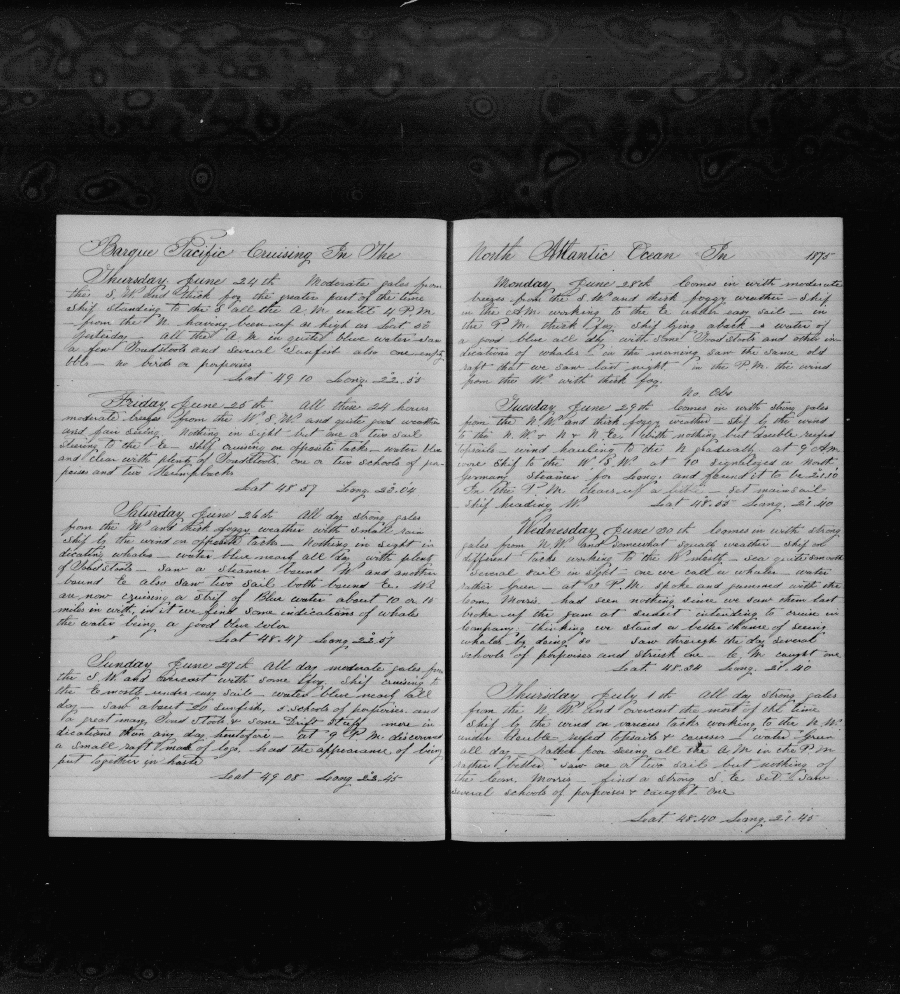 Barque Pacific Cruising In The
Thursday June 24th Moderate gales from
the S.W. and thick fog the greater part of the time
Ship standing to the S all the A.M. until 4 P.M.
from the N. having been up as high as Lat 50
yesterday. All the A.M. in quite blue water saw
a few Toadstools and several Sunfish also one empty
bbls - no birds or porpoises
Lat 49.10 Long. 22.55
Friday June 25th All these 24 hours
moderate breezes from the W.S.W. and quite good weather
and fair seeing. Nothing in sight but one or two sail
steering to the E - Ship cruising on opposite tacks - water blue
and clear with plenty of Toadstools, one or two schools of por-
poises and two Humpbacks
Lat 48.57 Long. 23.04
Saturday June 26th All day strong gales
from the W. and thick foggy weather with small rain
ship by the wind on opposite tacks - Nothing in sight in-
dicating whales - water blue most all day with plenty
of Toad Stools - Saw a steamer bound W. and another
bound E. also saw two sail both bound E.
are now cruising a strip of Blue water about 10 or 15
miles in wth, in it we find some indications of whale
the water being a good blue color
Lat 48.47 Long 22.57
Sunday June 27th All day moderate gales from
the S.W. and overcast with some fog. Ship cruising to
the E mostly under easy sail - water blue most all
day - saw about 20 sunfish, 2 schools of porpoises and
a great many Toad Stools & some Drift Stuff more in
dications than any day heretofore - At 9 P.M. discovered
a small raft made of logs, had the appearance of being
put together in haste
Lat 49.08 Long 22.45
North Atlantic Ocean In 1875
Monday June 28th Comes in with moderate
breezes from the S.W. and thick foggy weather - Ship
in the A.M. working to the E under easy sail - in
the P.M. thick fog. Ship lying aback & water of
a good blue all day with some Toad Stools and other in-
dications of whales in the morning saw the same old
raft that we saw last night - in the P.M. the wind
from the W. with thick fog.
No Obs
Tuesday June 29th Comes in with strong gales
from the N.W. and thick foggy weather - Ship by the wind
to the N.W. & N & N.E. With nothing but double reefed
topsails - wind hauling to the N gradually at 9 A.M.
wore ship to the W.S.W. at 10 signalized a North
German steamer for Long. and found it to be 21.10
In the P.M. clears up a little - Set mainsail
Ship heading W. Lat 48.55 Long. 21.40
Wednesday June 30th Comes in with strong
gales from N.W. and somewhat squally weather - ship on
different tacks working to the W. mostly - sea quite smooth
Several sail in sight - one we call a whaler - water
rather green - at 1 P.M. spoke and gammed with the
Com. Morris. had seen nothing since we saw them last
broke up the gam at sunset intending to cruise in
Company, thinking we stand a better chance of seeing
whales by doing so Saw through the day several
schools of porpoises and struck one - C.M. caught one
Lat 48.34 Long. 21.40
Thursday July 1st All day strong gales
from the N.W. and overcast the most of the time
Ship by the wind on various tacks working to the N.W.
under double reefed topsails & courses water "green"
all day - rather poor seeing all the A.M. in the P.M.
rather better saw one or two sail but nothing of
the Com. Morris - find a strong S.E. set. Saw
several schools of porpoises & caught one
Lat 48.40 Long. 21.45